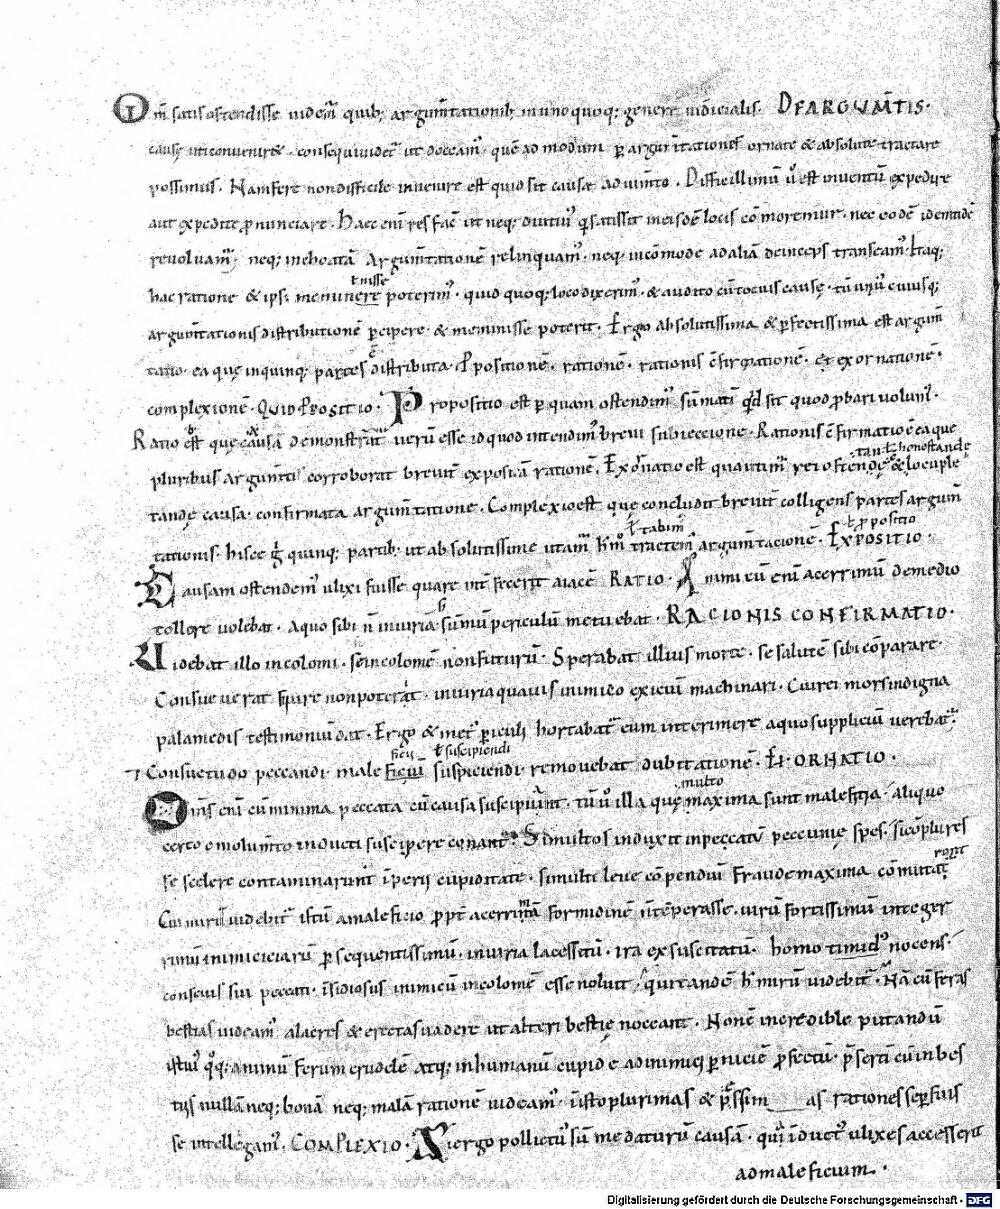 Qm̄ satis ostendisse uidem̄ quib; argum̄tationib; in uno quoq; genere iudicialis DE ARGUM̄TIS.
causę uti conuenir& . consequi uidet̄ ut doceam᷒ . quē ad modum ꝑ argum̄tationes ornate & absolute tractare
possimus . Nam fere non difficile inuenire est quid sit causae adium̄to . Difficillimū ū est inuentū expedire
aut expedite ꝓnunciare . Haec enī res fac̄ ut neq; diutius q̄ satis sit in eisdē locis cōmoremur . nec eodē identidē
reuoluam᷒ . neq; inchoatā argum̄tationē relinquam᷒ . neq; incōmode ad aliā deinceps transeam᷒ . Itaq;
ł nisse
hac ratione & ipsi meminere poterim᷒ . quid quoq; loco dixerim᷒ . & auditor cū totius causę . tū uniū cuiusq;
argum̄tationis distributionē ꝑcipere . & meminisse poterit . Ergo absolutissima & ꝑfectissima est argum̄
tatio . ea que in quinq; partes distributa ē . Ꝓpositionē . rationē . rationis c̄firmationē . & exornationē .
complexionē . QUID ꝒPOSITIO . Propositio est ꝑ quam ostendim᷒ sūmatī q̄d sit quod ꝓbari uolum᷒ .
Ratio est que causā demonstrat uerū esse id quod intendim᷒ breui subieccione . Rationis c̄firmatio ē ea que
pluribus argum̄tis corroborat breuit̄ expositā rationē . Exornatio est qua utim᷒ rei ostendę & locuple
tan ł honestande
tandę causa . confirmata argum̄tatione . Complexio est que concludit breuit̄ colligens partes argum̄
tationis . hisce g̊ quinq; partib; ut absolutissime utam᷒ hc̄ m̊ tractem᷒ argum̄tacionē . EXPOSITIO .
ł tabim᷒ ł ꝓpositio
Causam ostendem᷒ ulixi fuisse quare int̄fecerit aiacē RATIO . Inimicū enī acerrimū de medio
tollere uolebat . A quo sibi n̄ iniuria sūmū periculū metuebat . RACIONIS CONFIRMATIO .
Uidebat illo incolomi . se incolomē non futurū . Sperabat illius morte . se salutē sibi cōparare .
Consueuerat si iure non poterat . iniuria quauis inimico exiciū machinari . Cui rei mors indigna
palamedis testimoniū dat . Ergo & met᷒ ꝑiculi hortabat̄ eum interimere a quo suppliciū uerebat̄ .
ficii ł suscipiendi
Consuetudo peccandi male ficiū suspiciendi remouebat dubitationē . EXORNATIO .
Oms̄ enī cū minima peccata cū causa suscipiunt . tū ū illa que maxima sunt maleficia . aliquo
multo
certo emolum̄to inducti suscipere conant̄ . Si multos induxit in peccatū peccunię spes . si cōplures
se scelere contaminarunt īperii cupiditate . si multi leue cōpendiū fraude maxima cōmutar
runt
Cui mirū uidebit̄ istū a maleficio ꝓpt̄ acerrimā formidinē n̄ tēperasse . uirū fortissimū integer
rimū inimiciciarū ꝑsequentissimū . iniuria lacessitū . ira exsuscitatū . homo timid᷒ nocens .
conscius sui peccati . īsidiosus inimicū incolomē esse noluit . cui tandē h̄ mirū uidebit̄ . Nā cū feras
bestias uideam᷒ alacres & erectas uadere ut alteri bestię noceant . Non ē incredibile putandū
isti᷒ q̊q; animū ferum crudelē atq; inhumanū cupide ad inimici ꝑniciē ꝓfectū . p̄sertī cū in bes
tiis nullā neq; bonā neq; malā rationē uideam᷒ . īisto plurimas & pessimas rationes semꝑ fuis
se intellegam᷒ . COMPLEXIO . Si ergo pollicit᷒ sū me daturū causā . qua īduct᷒ ulixes accesserit
ad maleficium .
Digitalisierung gefördert durch die Deutsche Forschungsgemeinschaft - DFG